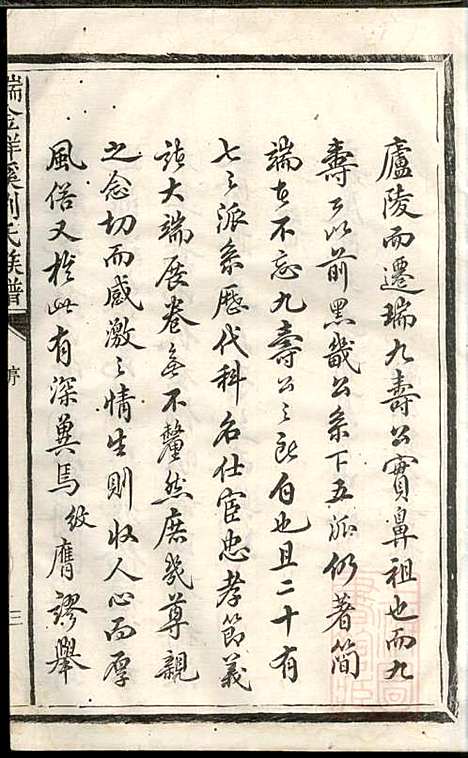 廬陵而遷瑞九壽公實鼻祖也而九
壽公以前黑畿公系下五派仍著簡
端者不忘九壽公之所自也且二十有
七之派系歷代科名仕宦忠孝節義
諸大端展卷無不釐然庶幾尊親
之念切而感激之情生則收人心而厚
風俗又於此有深冀焉紋膺謬舉
瑞金祥溪刘氏族譜
序
三